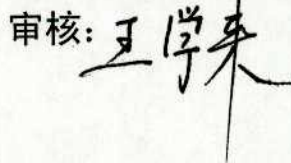 审核：王学来